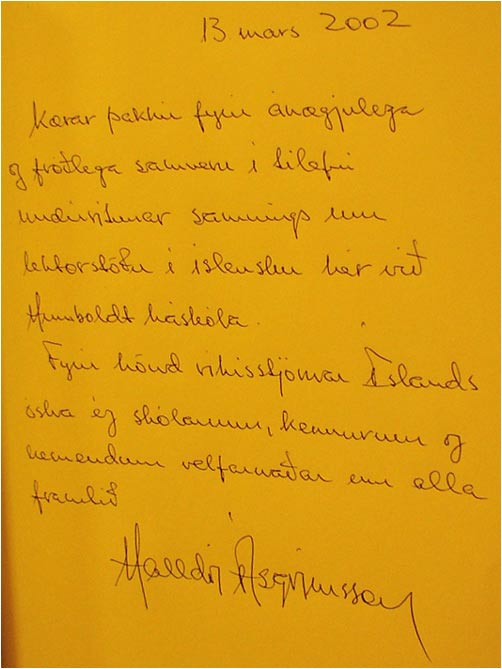 13 mars 2002
Kærar þakkir fyrir ánægjulega
og fróðlega samveru í tilefni
undirritunar samnings um
lektorstöðu í íslensku hér við
Humboldt háskóla.
Fyrir hönd ríkisstjórnar Íslands
óska ég skólanum, kennurum og
nemendum velfarnaðar um alla
framtíð
Halldór Ásgrímsson